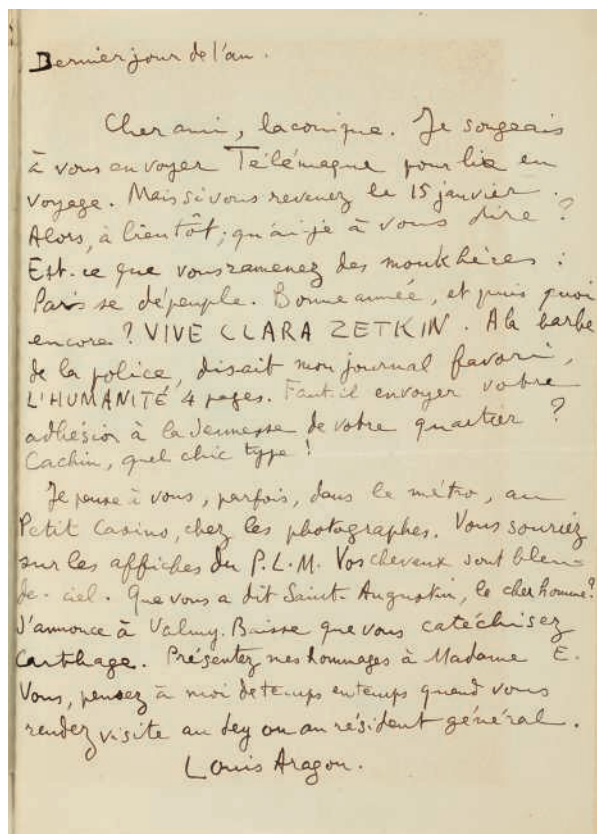 Dernier jour de l'an.
Cher ami, laconique. Je songeais
à vous envoyer Télémaque pour lire en
voyage. Mais si vous revenez le 15 janvier.
Alors, à bientôt; qu'ai-je à vous dire ?
Est-ce que vous ramenez des moukhères :
Paris se dépeuple. Bonne année, et puis quoi
encore ? VIVE CLARA ZETKIN. A la barbe
de la police, disait mon journal favori,
L'HUMANITÉ 4 pages. Faut-il envoyer votre
adhésion à la Jeunesse de votre quartier ?
Cachin, quel chic type !
Je pense à vous, parfois, dans le métro, au
Petit Casino, chez les photographes. Vous souriez
sur les affiches du P.L.M. Vos cheveux sont bleu-
de-ciel. Que vous a dit Saint-Augustin, le cher homme?
J'annonce à Valmy-Baisse que vous catéchisez
Carthage. Présentez mes hommages à Madame E.
Vous, pensez à moi de temps en temps quand vous
rendez visite au dey ou au résident général.
Louis Aragon.